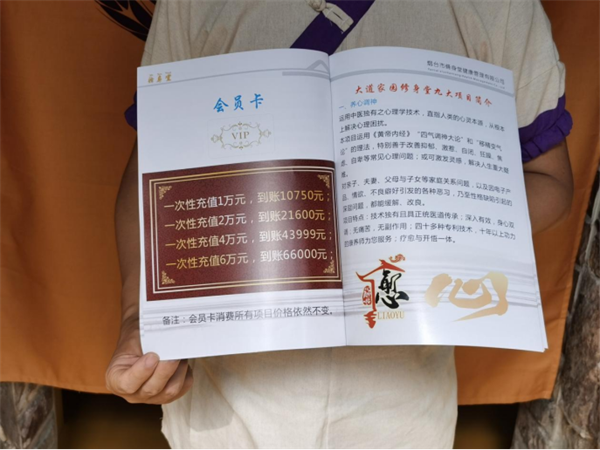 修身堂
会员卡
VIP
一次性充值1万元，到账10750元；
一次性充值2万元，到账21600元；
一次性充值4万元，到账43999元；
一次性充值6万元，到账66000元；
备注：会员卡消费所有项目价格依然不变。
大道家园修身堂九大项目简介
一、养心调神
运用中医独有之心理学技术，直指人类的心灵本源，从根本
上解决心理困扰。
本项目运用《黄帝内经》“四气调神大论”和“移精变气
论”的理法，特别善于改善抑郁、激惹、自闭、狂躁、焦
虑、自卑等常见心理问题；或可激发灵感，解决人生重大疑
难。
对亲子、夫妻、父母与子女等家庭关系问题，以及因电子产
品、情欲、不良癖好引发的各种恶习，乃至性格缺陷引起的
深层问题，都能缓解、改良。
项目特点：技术独有且具正统医道传承；深入有效，身心互
调，无痛苦，无副作用；四十多种专利技术，十年以上功力
的康养师为您服务；疗愈与开悟一体。
愈
LIAOYU
心